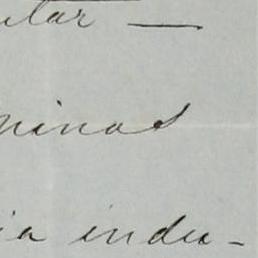 ular —
ninas
ia indu-